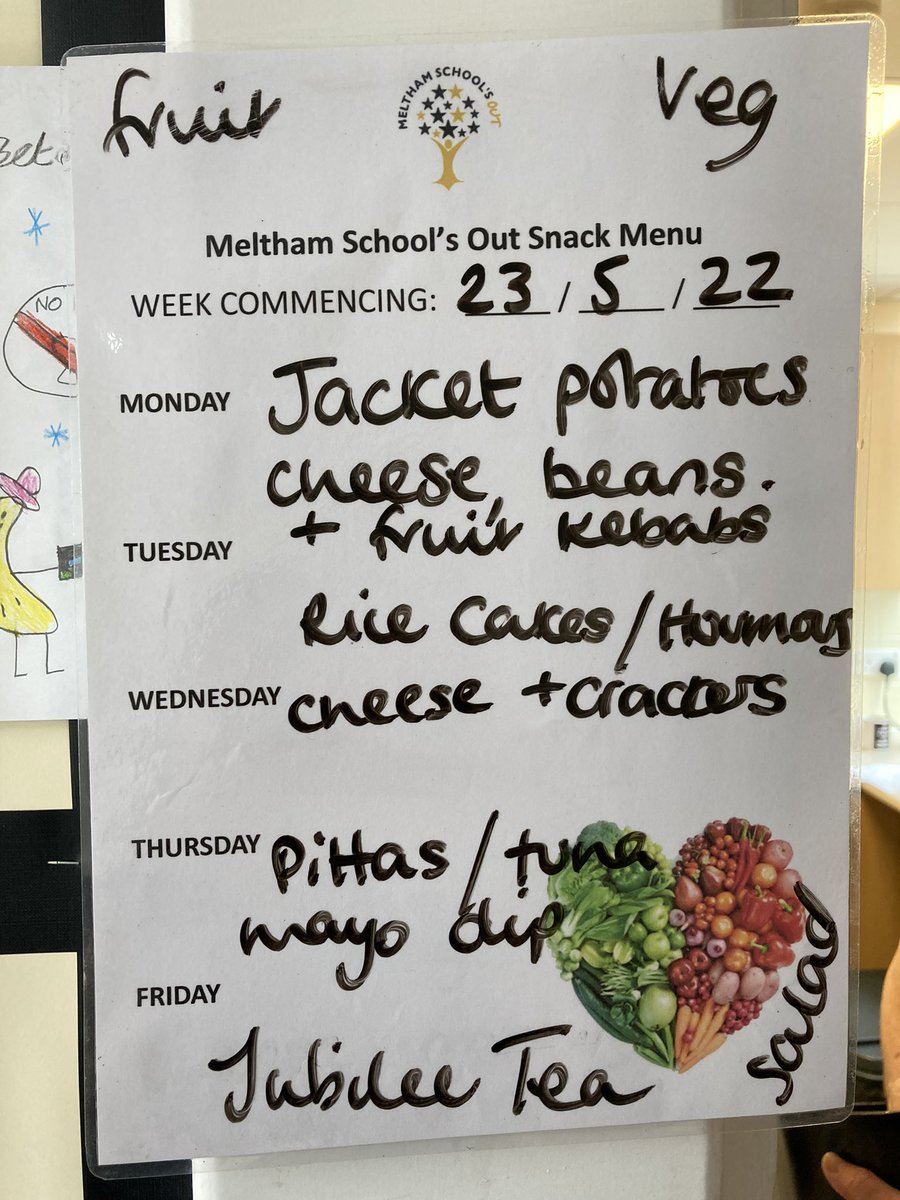 fruit
MELTHAM SCHOOL'S OUT
Veg
Meltham School's Out Snack Menu
WEEK COMMENCING: 23 / 5 / 22
MONDAY Jacket potatoes
cheese, beans.
+ fruit kebabs
TUESDAY
Rice Cakes / Houmous
WEDNESDAY cheese + crackers
THURSDAY pittas / tuna
mayo dip
FRIDAY
Jubilee Tea
salad
NO